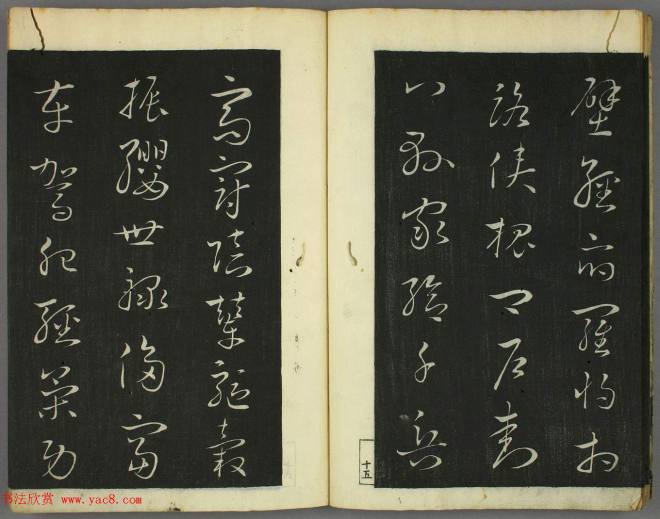 壁經府羅將相
路俠槐卿戶封
八縣家給千兵
十五
高冠陪輦驅轂
振纓世祿侈富
車駕肥輕策功
书法欣赏 www.yac8.com